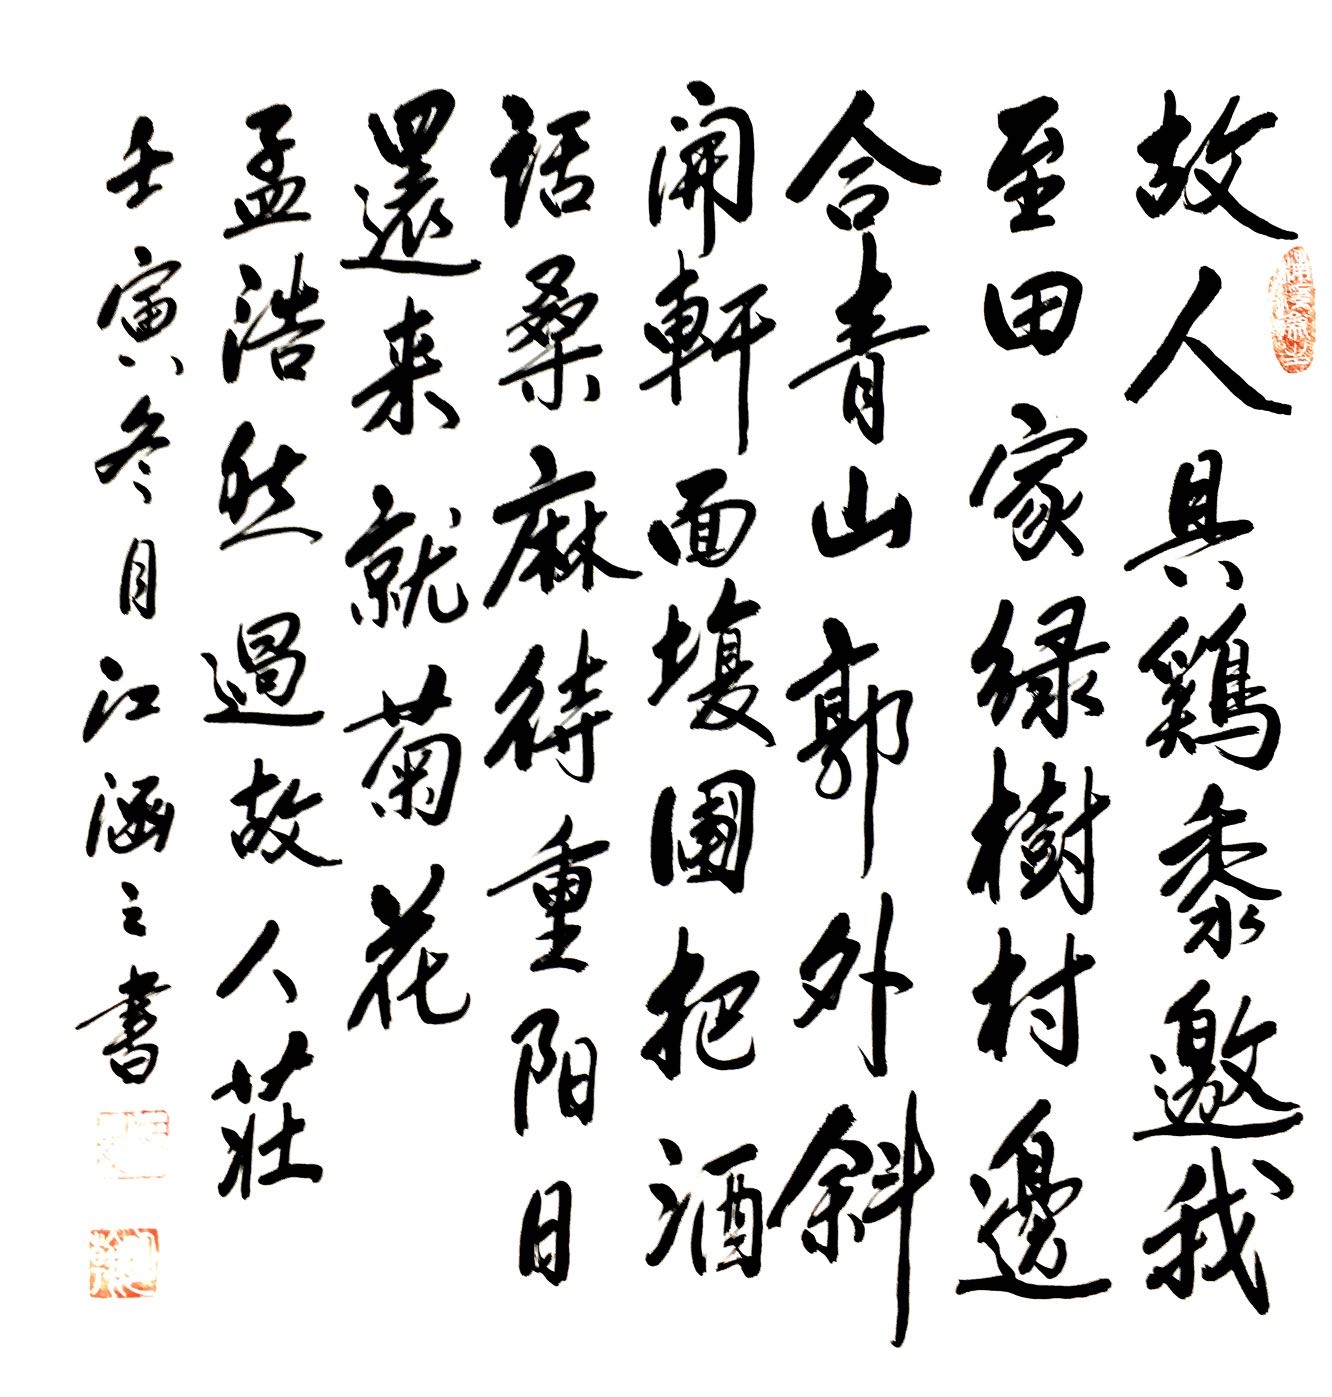 故人具鷄黍邀我
至田家緑樹村邊
合青山郭外斜
開軒面場圃把酒
話桑麻待重阳日
還来就菊花
孟浩然過故人莊
壬寅冬月江涵之書